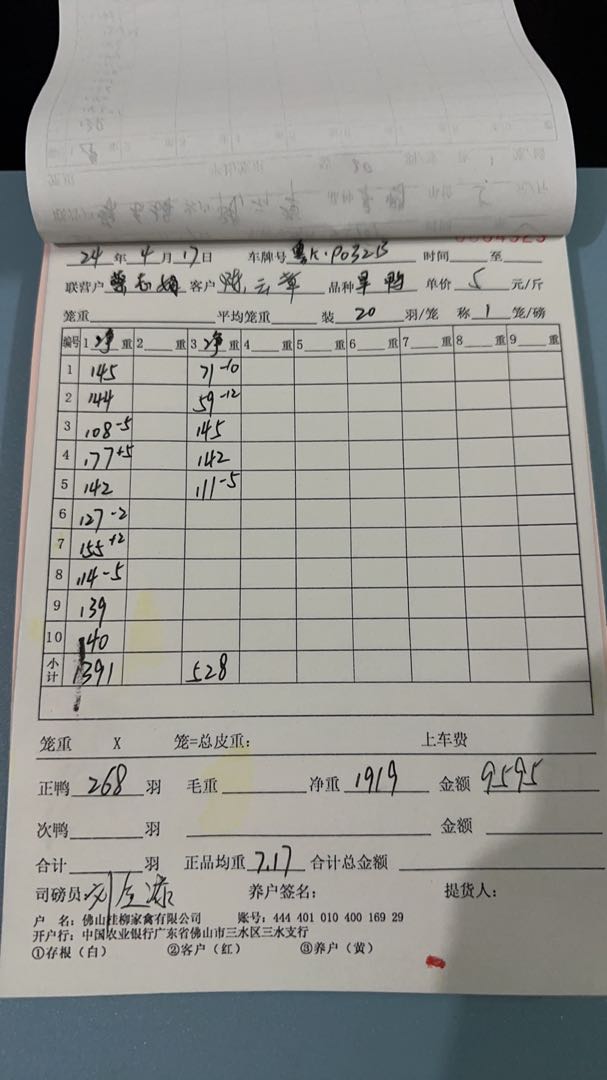 24 年 4 月 17 日 车牌号 粤K·P032B 时间 至
联营户 客户 云 品种 旱鸭 单价 5 元/斤
笼重 平均笼重 装 20 羽/笼 称 1 笼/磅
编号 1 净 重 2 重 3 净 重 4 重 5 重 6 重 7 重 8 重 9 重
1 145 71-10
2 144 59-12
3 108-5 145
4 177+5 142
5 142 111-5
6 127-2
7 155+2
8 114-5
9 139
10 140
小计 1391 528
笼重 X 笼=总皮重: 上车费
正鸭 268 羽 毛重 净重 1919 金额 9595
次鸭 羽 金额
合计 羽 正品均重 7.17 合计总金额
司磅员: 养户签名: 提货人:
户 名: 佛山桂柳家禽有限公司 账号: 444 401 010 400 169 29
开户行: 中国农业银行广东省佛山市三水区三水支行
①存根（白） ②客户（红） ③养户（黄）